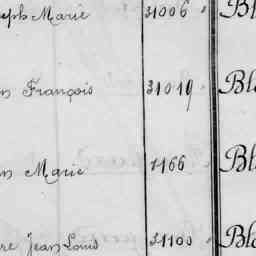 seph Marie 31006 Bl
n François 31019 Bla
n Marie 1166 Bla
re Jean Louis 31100 Bla